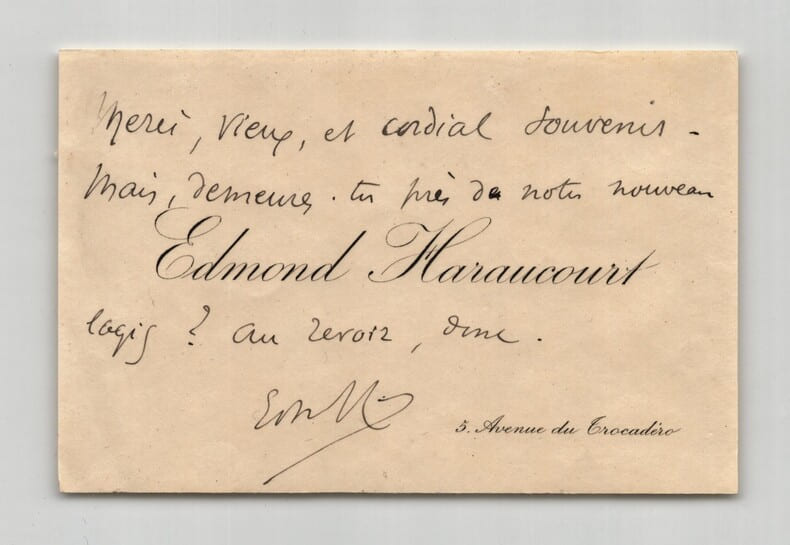 Merci, vieux, et cordial souvenir -
Mais, demeures-tu près de notre nouveau
Edmond Haraucourt
logis ? au revoir, donc.
5. Avenue du Trocadéro